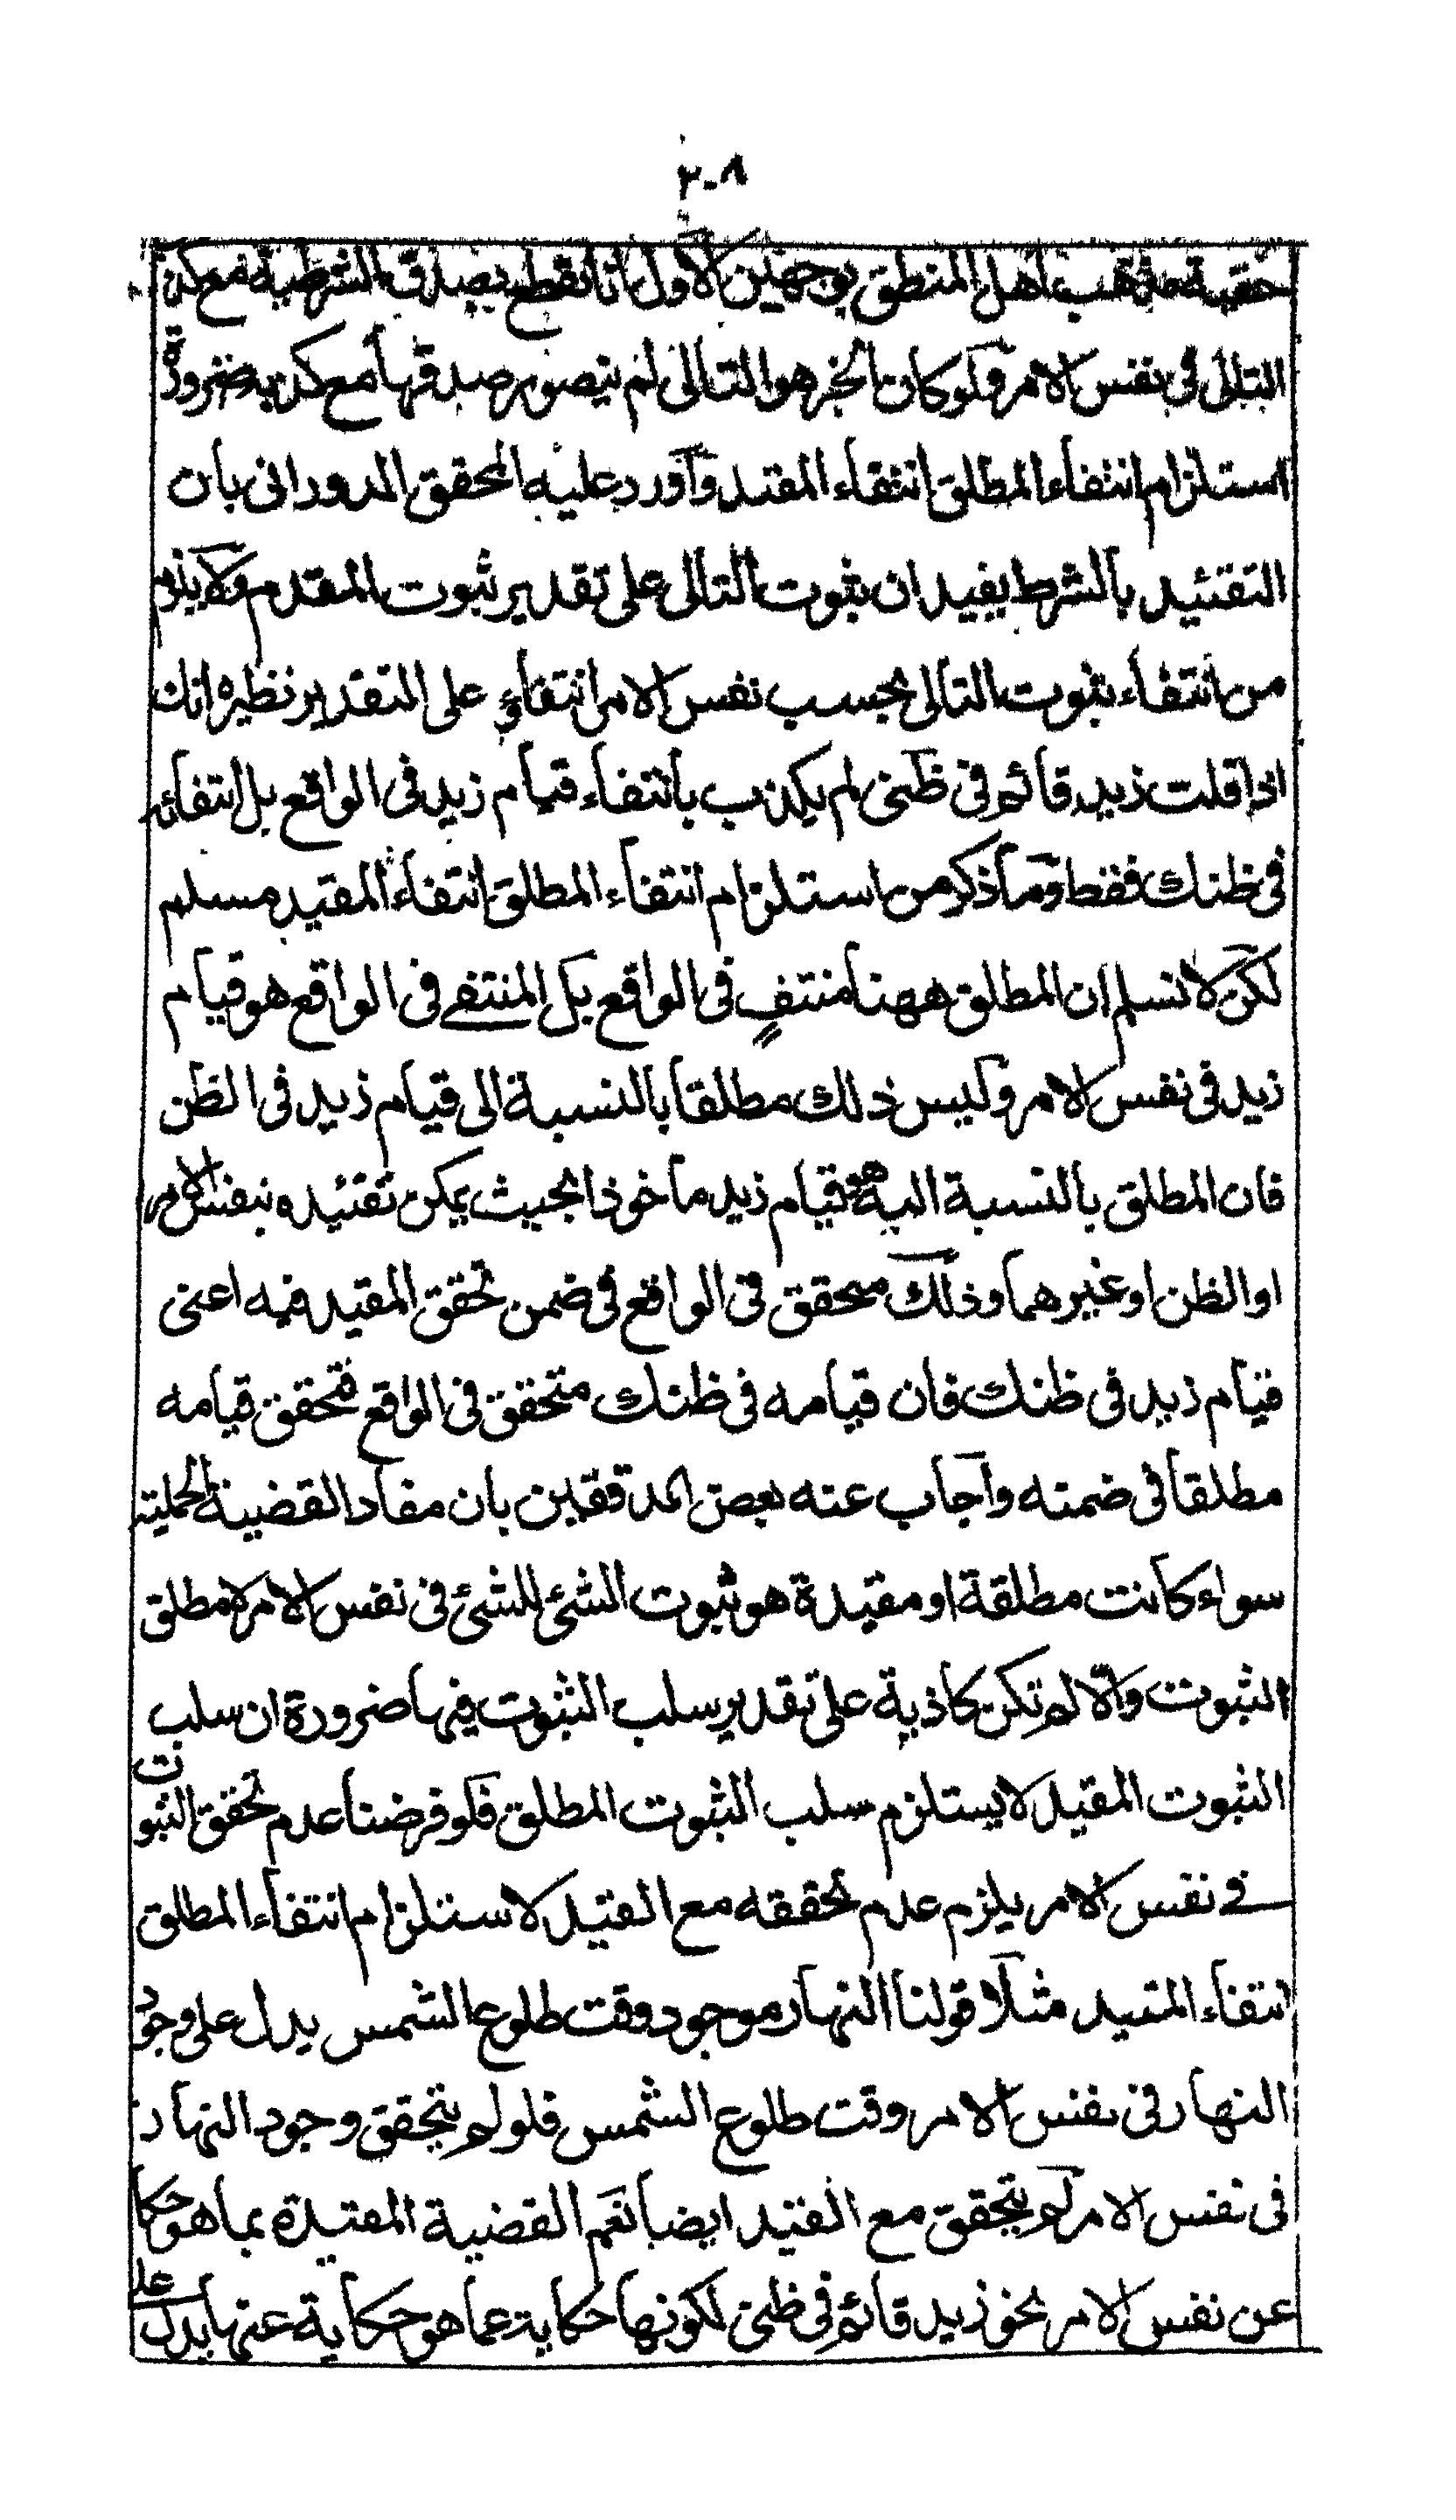 ٢٠٨
حقية مذهب اهل المنطق بوجهين الاول انا نقطع بصدق الشرطية مع كذب
التالى فى نفس الامر فلو كان الخبر هو التالى لم يتصور صدقها مع كذبه ضرورة
استلزام انتفاء المطلق انتفاء المقيد وآورد عليه المحقق الدوانى بان
التقئيد بالشرط يفيد ان ثبوت التالى على تقدير ثبوت المقدم ولا يلزم
من انتفاء ثبوت التالى بحسب نفس الامر انتفاؤه على التقدير نظيره انك
اذا قلت زيد قائم فى ظنى لم يكذب بانتفاء قيام زيد فى الواقع بل انتفائه
فى ظنك فقط وما ذكر من استلزام انتفاء المطلق انتفاء المقيد مسلم
لكن لا نسلم ان المطلق ههنا منتفٍ فى الواقع بل المنتفے فى الواقع هو قيام
زيد فى نفس الامر وليس ذلك مطلقا بالنسبة الى قيام زيد فى الظن
فان المطلق بالنسبة اليه هو قيام زيد ماخوذا بحيث يمكن تقئيده بنفس الامر
او الظن او غيرهما وذلك متحقق فى الواقع فى ضمن تحقق المقيد فيه اعنى
قيام زيد فى ظنك فان قيامه فى ظنك متحقق فى الواقع فتحقق قيامه
مطلقا فى ضمنه وآجاب عنه بعض المدققين بان مفاد القضية الحملية
سواء كانت مطلقة او مقيدة هو ثبوت الشئ للشئ فى نفس الامر لا مطلق
الثبوت والا لم تكن كاذبة على تقدير سلب الثبوت فيها ضرورة ان سلب
الثبوت المقيد لا يستلزم سلب الثبوت المطلق فلو فرضنا عدم تحقق الثبوت
فے نفس الامر يلزم عدم تحققه مع القيد لاستلزام انتفاء المطلق
انتفاء المقيد مثلا قولنا النهار موجود وقت طلوع الشمس يدل على وجود
النهار فى نفس الامر وقت طلوع الشمس فلو لم يتحقق وجود النهار
فى نفس الامر لم يتحقق مع القيد ايضا نعم القضية المقيدة بما هو حكاية
عن نفس الامر نحو زيد قائم فى ظنى لكونها حكاية عما هو حكاية عنها يدل على